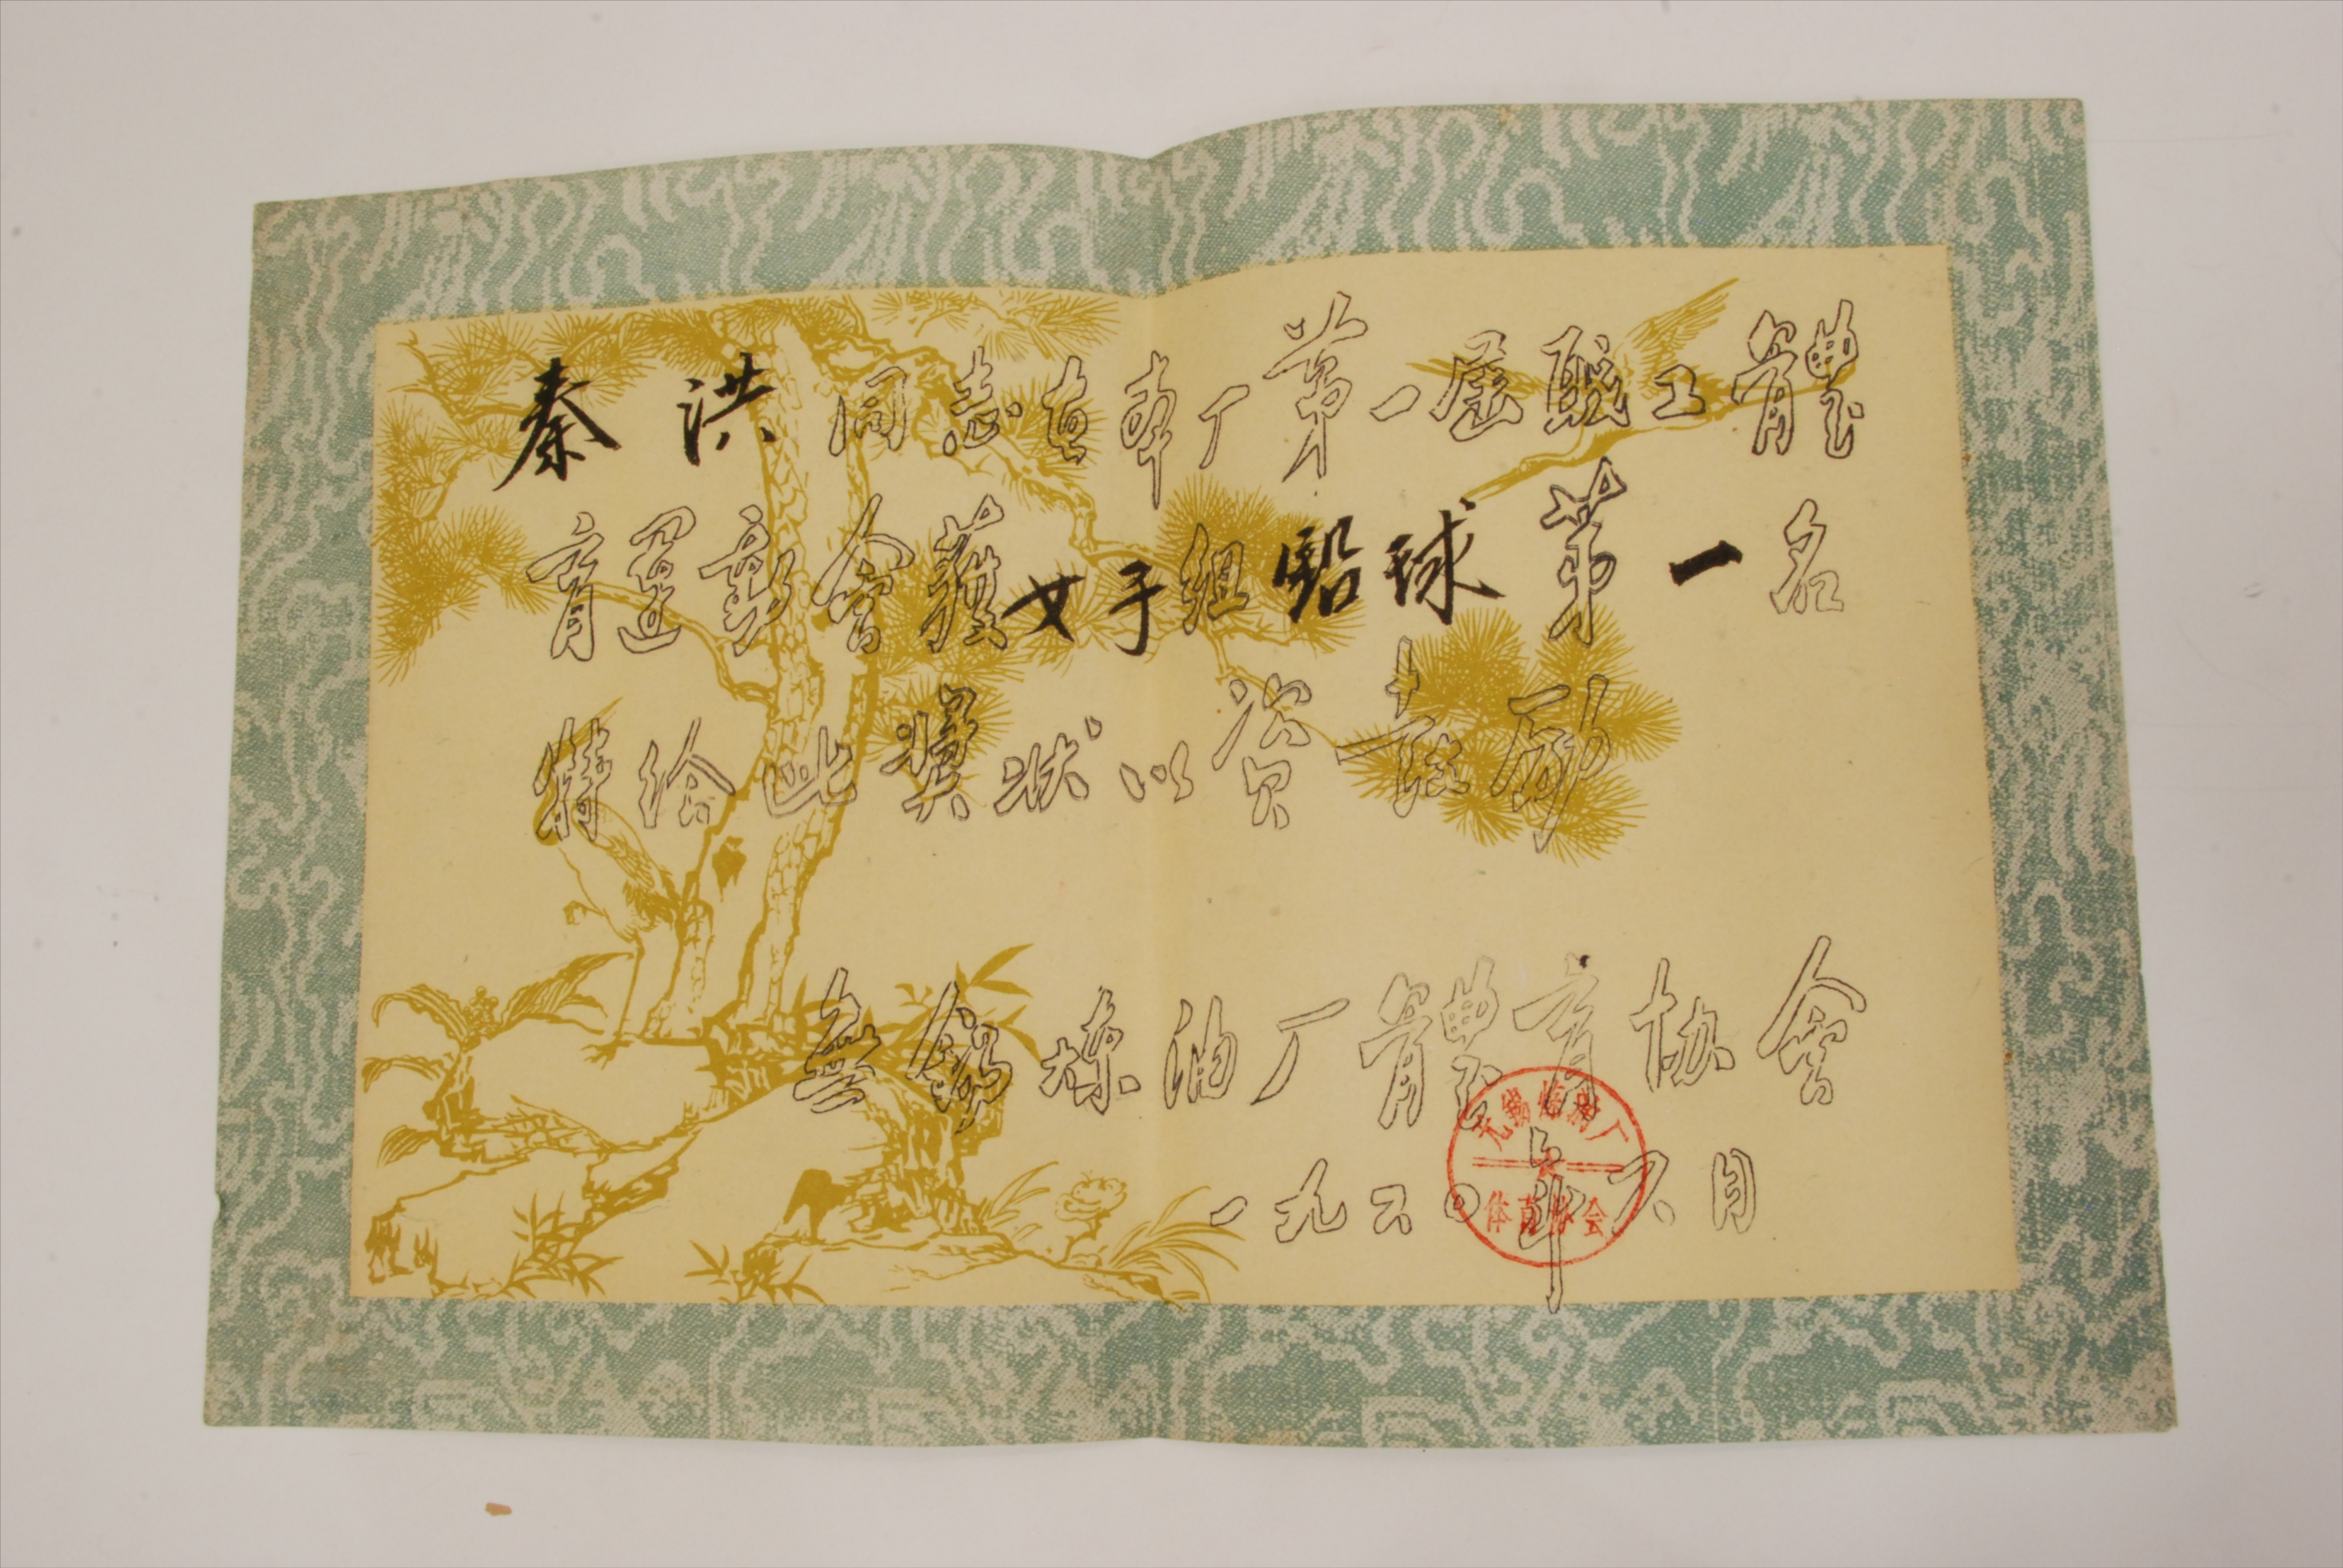 秦洪同志在本厂第一届职工體
育運動会獲女子组鉛球第一名
特给此奨状以资鼓励
無錫炼油厂體育协會
一九六〇年六月
无锡炼油厂
体育协会